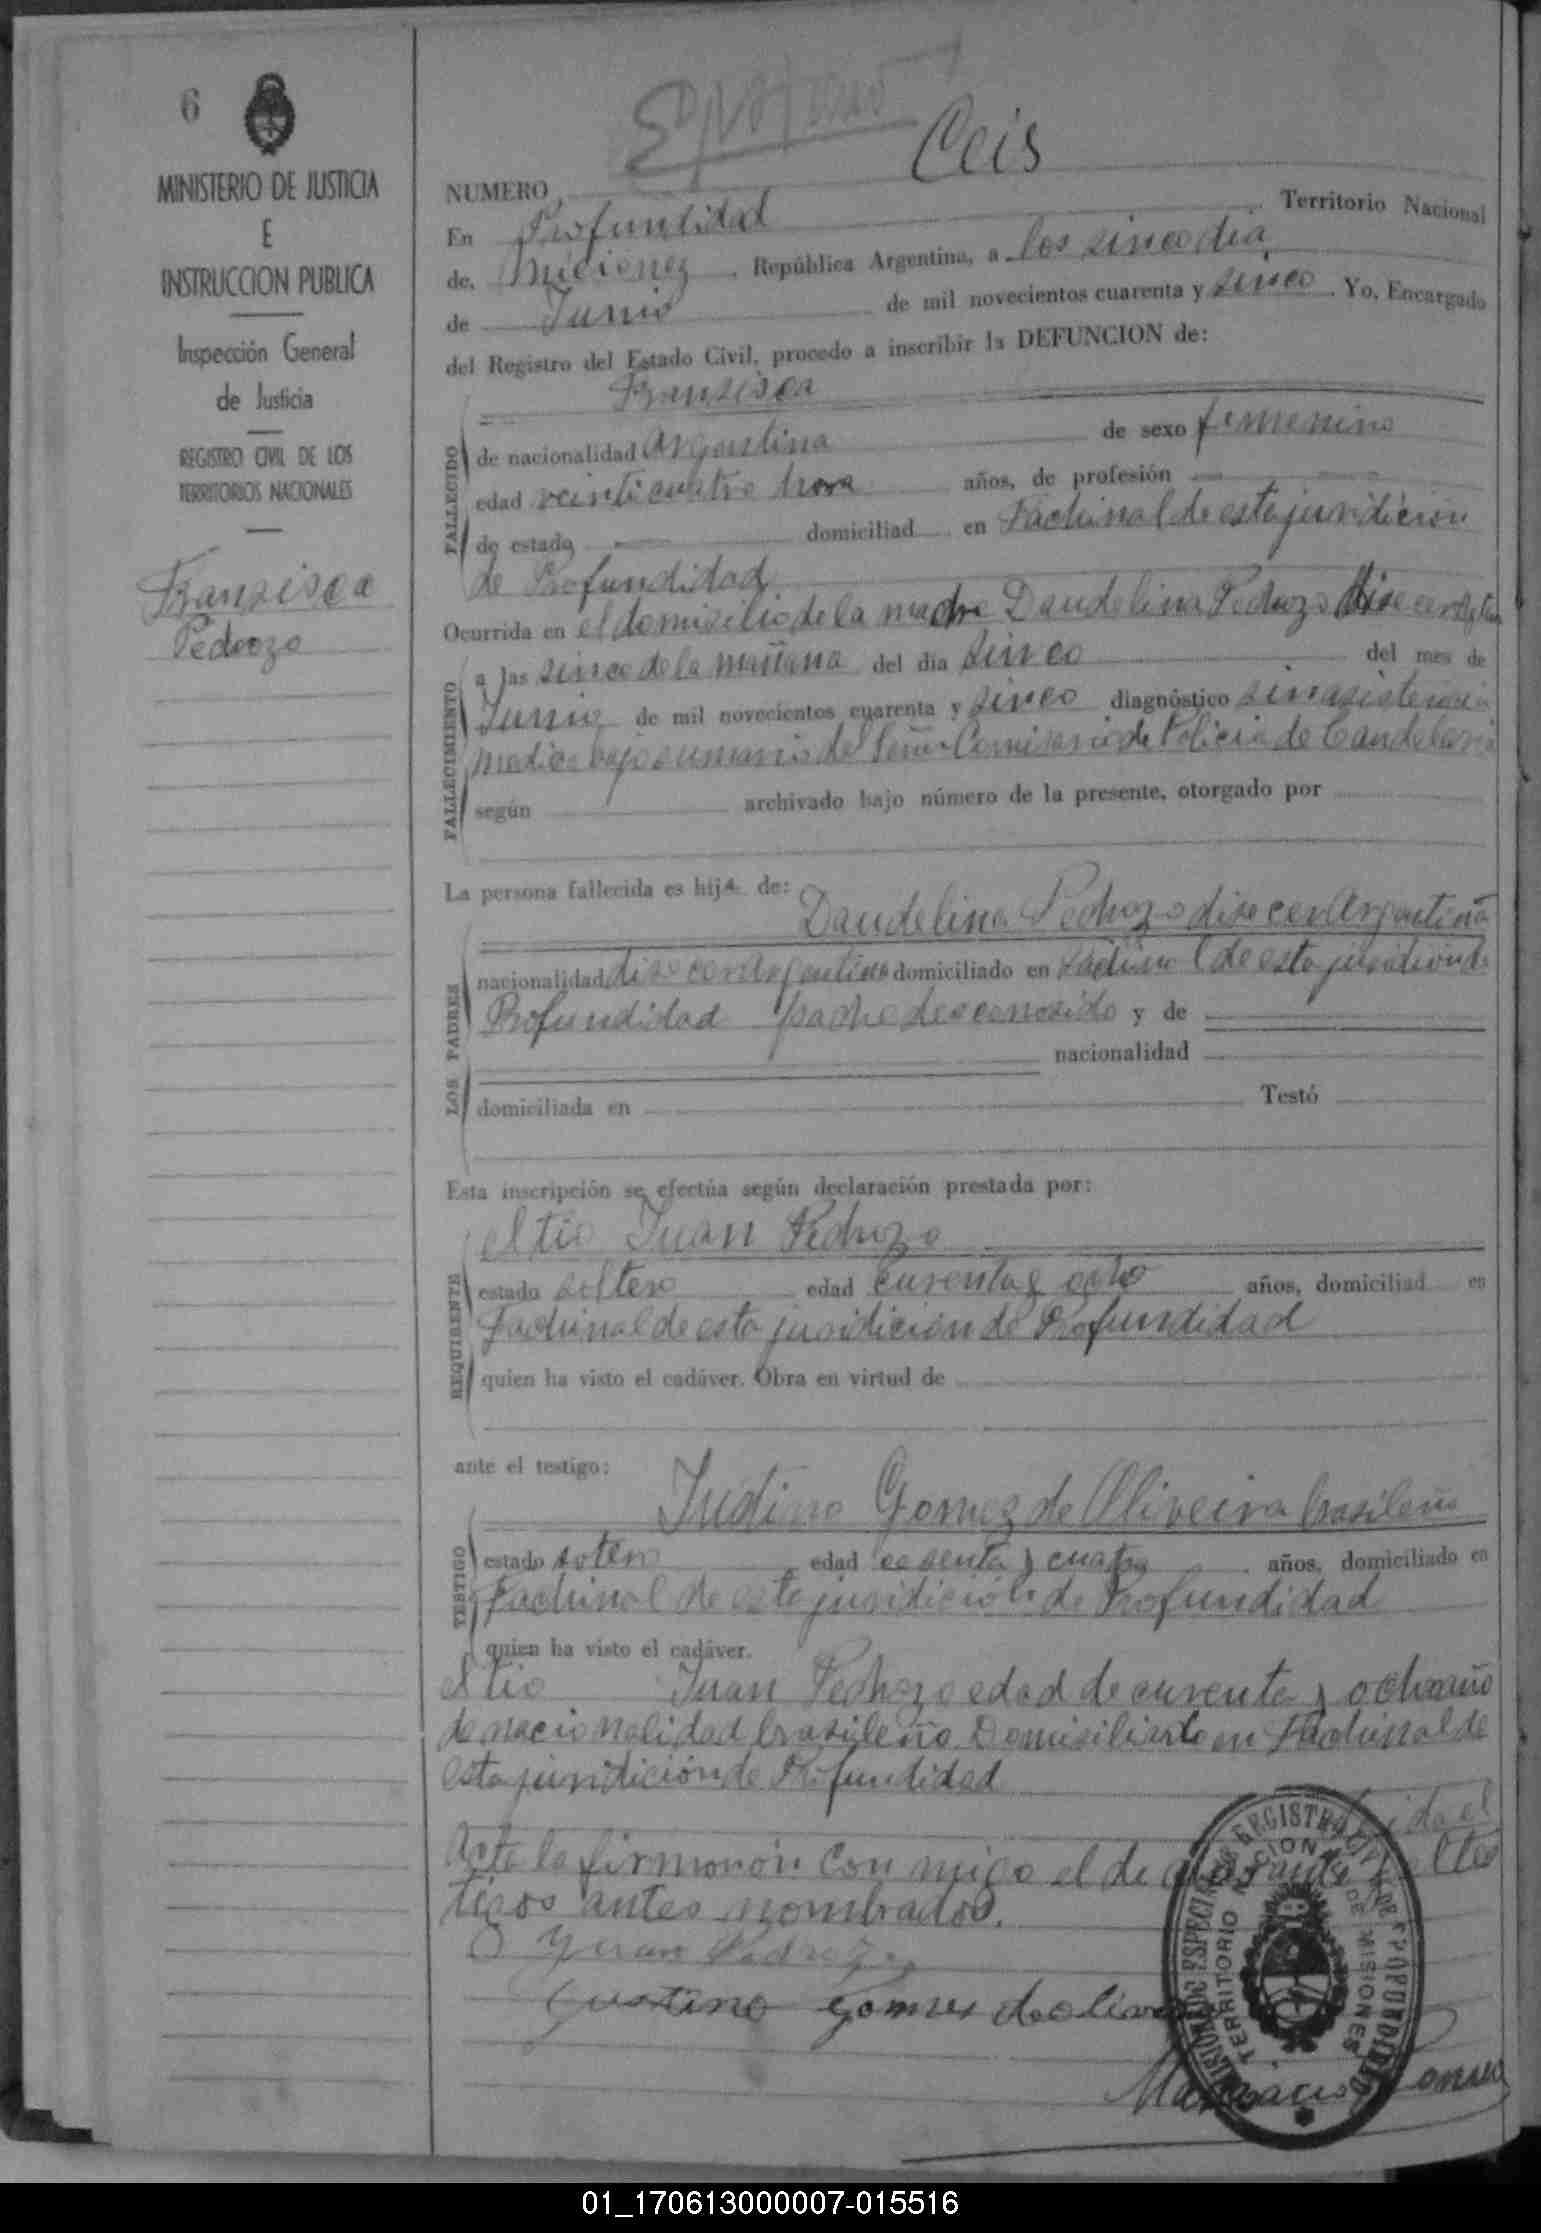 6
MINISTERIO DE JUSTICIA
E
INSTRUCCION PUBLICA
Inspección General
de Justicia
REGISTRO CIVIL DE LOS
TERRITORIOS NACIONALES
Fransisca
Pedrozo
NUMERO Ceis
En Profundidad Territorio Nacional
de, Micionez, República Argentina, a los sinco dia
de Junio de mil novecientos cuarenta y sinco. Yo, Encargado
del Registro del Estado Civil, procedo a inscribir la DEFUNCION de:
Fransisca
FALLECIDO
de nacionalidad Argentina de sexo femenino
edad veinticuatro hora años, de profesión
de estado domiciliad en Fachinal de esta juridicion
de Profundidad
Ocurrida en el domisilio de la madre Daudelina Pedrozo dise cer
FALLECIMIENTO
a las sinco de la mañana del día sinco del mes de
Junio de mil novecientos cuarenta y sinco diagnóstico sin asistencia
medica bajo sumario del Señor Comisario de Policia de Candelaria
según archivado bajo número de la presente, otorgado por
La persona fallecida es hija de:
Daudelina Pedrozo dise cer Argentina
LOS PADRES
nacionalidad dise cer Argentina domiciliado en Fachinal de esta juridicion de
Profundidad padre desconosido y de
nacionalidad
domiciliada en Testó
Esta inscripción se efectúa según declaración prestada por:
el tio Juan Pedrozo
REQUIRENTE
estado soltero edad curenta y ocho años, domiciliad en
Fachinal de esta juridicion de Profundidad
quien ha visto el cadáver. Obra en virtud de
ante el testigo:
Justino Gomez de Oliveira brasileño
TESTIGO
estado soltero edad cesenta y cuatro años, domiciliado en
Fachinal de esta juridición de Profundidad
quien ha visto el cadáver.
el tio Juan Pedrozo edad de curenta y ocho año
de nacionalidad brasileño Domisiliado en Fachinal de
esta juridición de Profundidad
el
Acta la firmaron con migo el de
tigos antes nombrados.
Juan Pedrozo
Justino Gomes de oliveira
REGISTRO CIVIL DE PROFUNDIDAD
TERRITORIO NACIONAL DE MISIONES
01_170613000007-015516